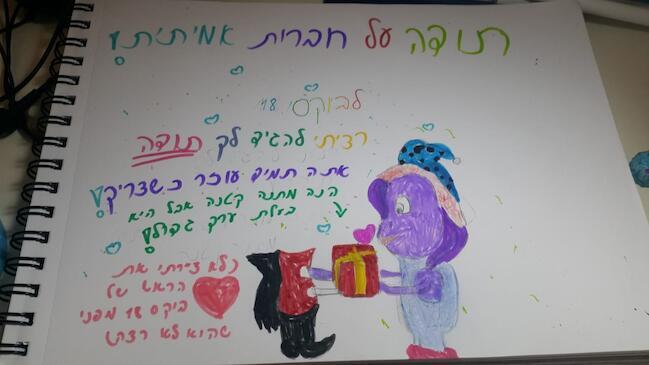 תודה על חברות אמיתית!
לבוקסי 18
רציתי להגיד לך תודה
אתה תמיד עוזר כשצריך!
הנה מתנה קטנה אבל היא
בעלת ערך גדול!
(לא ציירתי את
הראש של
ביקס 18 מפני
שהוא לא רצה)